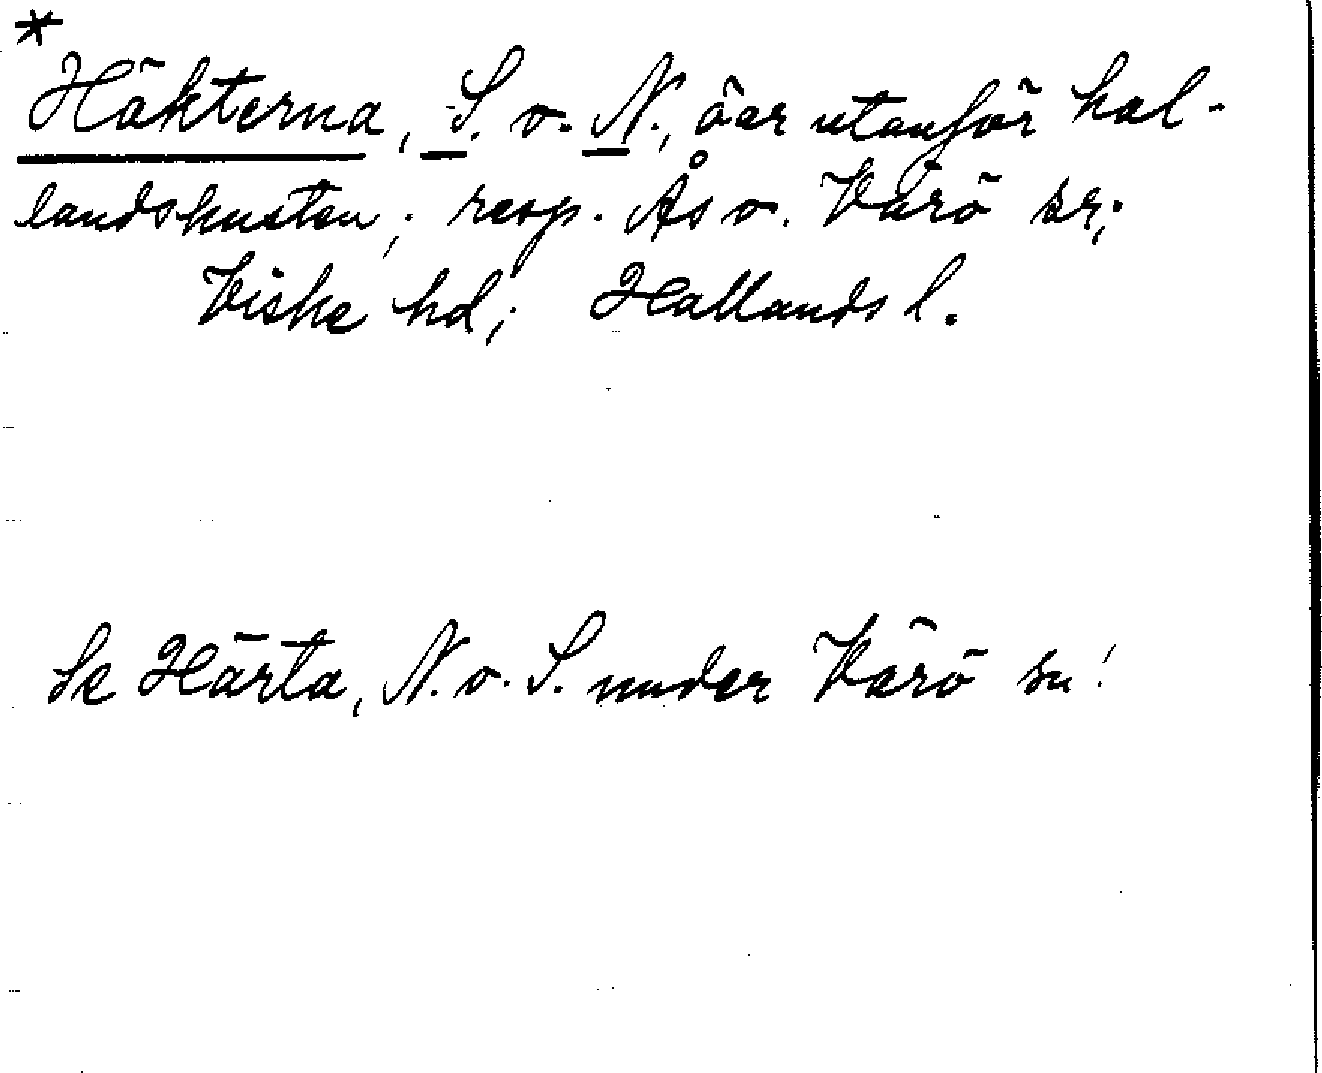 *
Häkterna, S. o. N., öar utanför hal-
landskusten; resp. Ås o. Värö sr;
Viske hd; Hallands l.
Se Härta, N. o. S. under Värö sn!